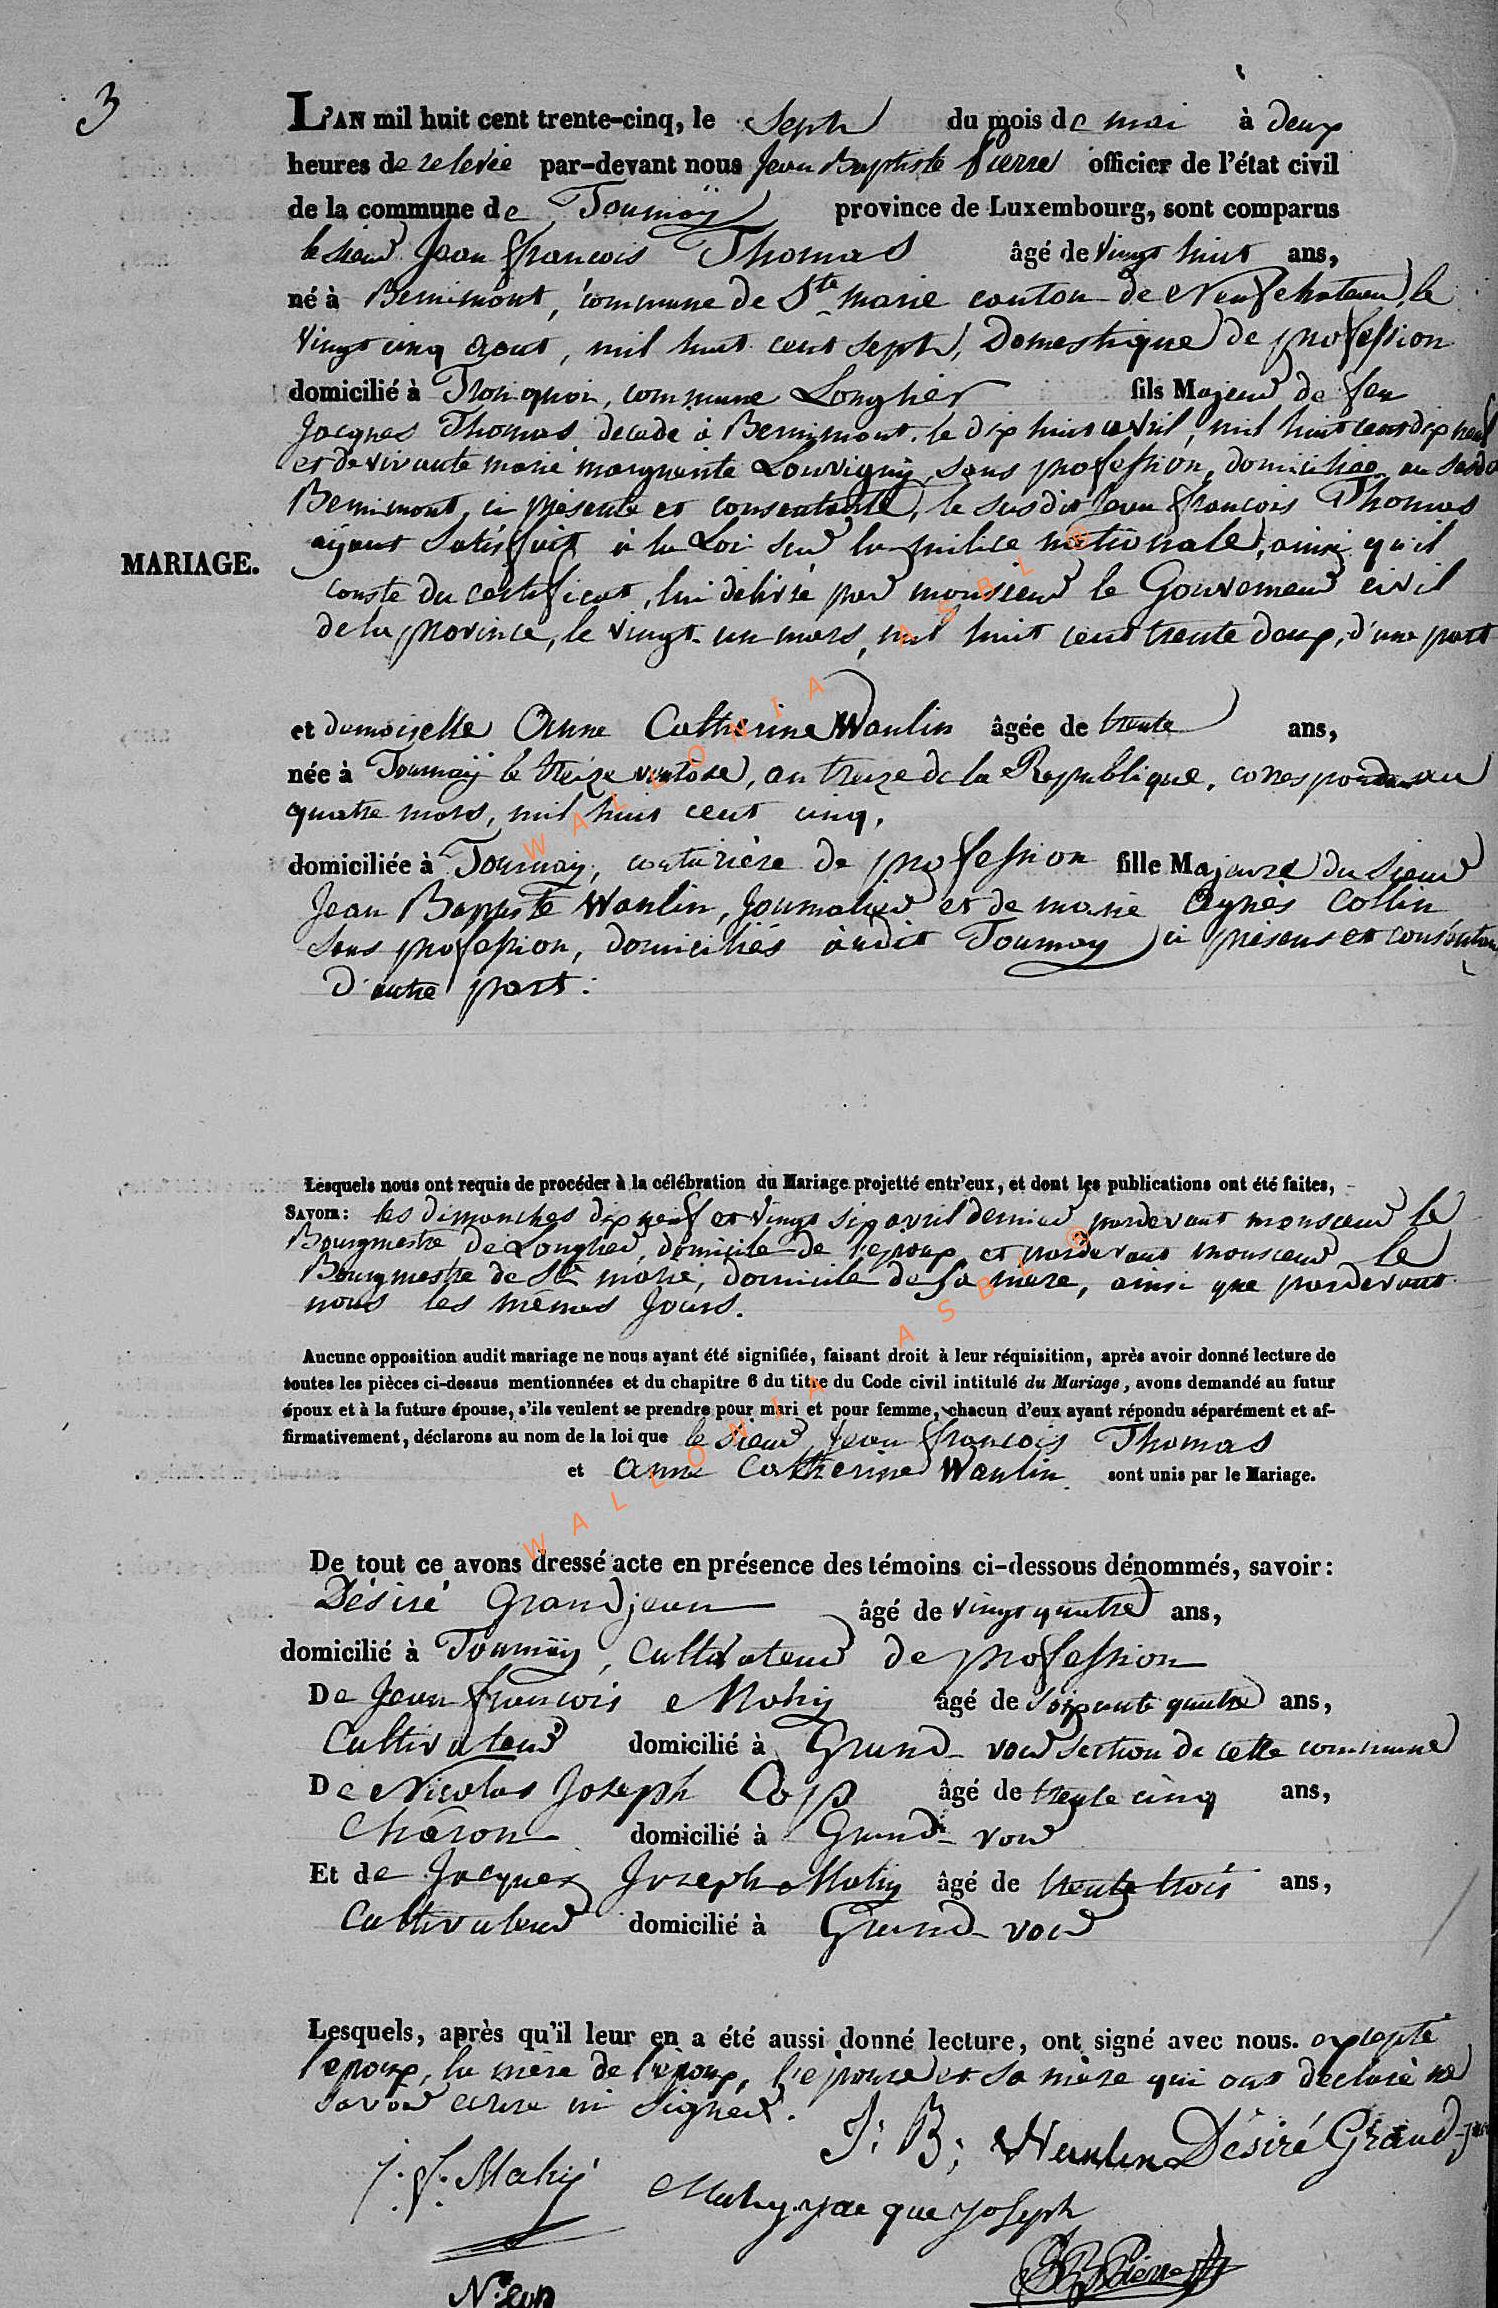 3
L'AN mil huit cent trente-cinq, le sept du mois de mai à deux
heures de relevée par-devant nous Jean Baptiste Pierre officier de l'état civil
de la commune de Tournaÿ province de Luxembourg, sont comparus
le sieur Jean françois Thomas âgé de vingt huit ans,
né à Bernimont, commune de Ste marie canton de Neufchateau, le
vingt cinq aout, mil huit cent sept, Domestique de profession
domicilié à Tronquoi, commune Longlier fils Majeur de feu
Jacques Thomas décédé à Bernimont le dix huit avril, mil huit cent dix neuf
et de vivante marie marguerite Louvigny, sans profession, domiciliée au susdit
Bernimont, ci présente et consentante, le susdit Jean françois Thomas
ayant satisfait à la Loi sur la milice nationale, ainsi qu'il
MARIAGE.
conste du certificat, lui délivré par monsieur le Gouverneur civil
de la province, le vingt-un mars, mil huit cent trente deux, d'une part
et demoiselle Anne Catherine Wanlin âgée de trente ans,
née à Tournaÿ le treize ventose, an treize de la Republique, correspondant au
quatre mars, mil huit cent cinq,
domiciliée à Tournay, couturière de profession fille Majeure du sieur
Jean Baptiste Wanlin, Journalier et de marie Agnès Collin
sans profession, domiciliés audit Tournay ci présens et consentans
d'autre part.
Lesquels nous ont requis de procéder à la célébration du Mariage projetté entr'eux, et dont les publications ont été faites,
SAVOIR: les dimanches dix neuf et vingt six avril dernier pardevant monsieur le
Bourgmestre de Longlier, domicile de l'époux et pardevant monsieur le
Bourgmestre de Ste marie, domicile de sa mère, ainsi que pardevant
nous les mêmes Jours.
Aucune opposition audit mariage ne nous ayant été signifiée, faisant droit à leur réquisition, après avoir donné lecture de
toutes les pièces ci-dessus mentionnées et du chapitre 6 du titre du Code civil intitulé du Mariage, avons demandé au futur
époux et à la future épouse, s'ils veulent se prendre pour mari et pour femme, chacun d'eux ayant répondu séparément et af-
firmativement, déclarons au nom de la loi que le sieur Jean françois Thomas
et Anne Catherine Wanlin sont unis par le Mariage.
De tout ce avons dressé acte en présence des témoins ci-dessous dénommés, savoir:
Désiré Grandjean âgé de vingt quatre ans,
domicilié à Tournaÿ, cultivateur de profession
De Jean françois Mahy âgé de soixante quatre ans,
Cultivateur domicilié à Grand-voir section de cette commune
De Nicolas Joseph âgé de trente cinq ans,
Charon domicilié à Grand-voir
Et de Jacques Joseph Mahy âgé de trente trois ans,
Cultivateur domicilié à Grand-voir
Lesquels, après qu'il leur en a été aussi donné lecture, ont signé avec nous. excepté
l'époux, la mère de l'époux, l'épouse et sa mère qui ont declaré ne
savoir ecrire ni signer.
J: B: Wanlin Désiré Grandjean
J. f. Mahy Mahy yac que yoseph
JB Pierre
WALLONIA ASBL ©
WALLONIA ASBL ©